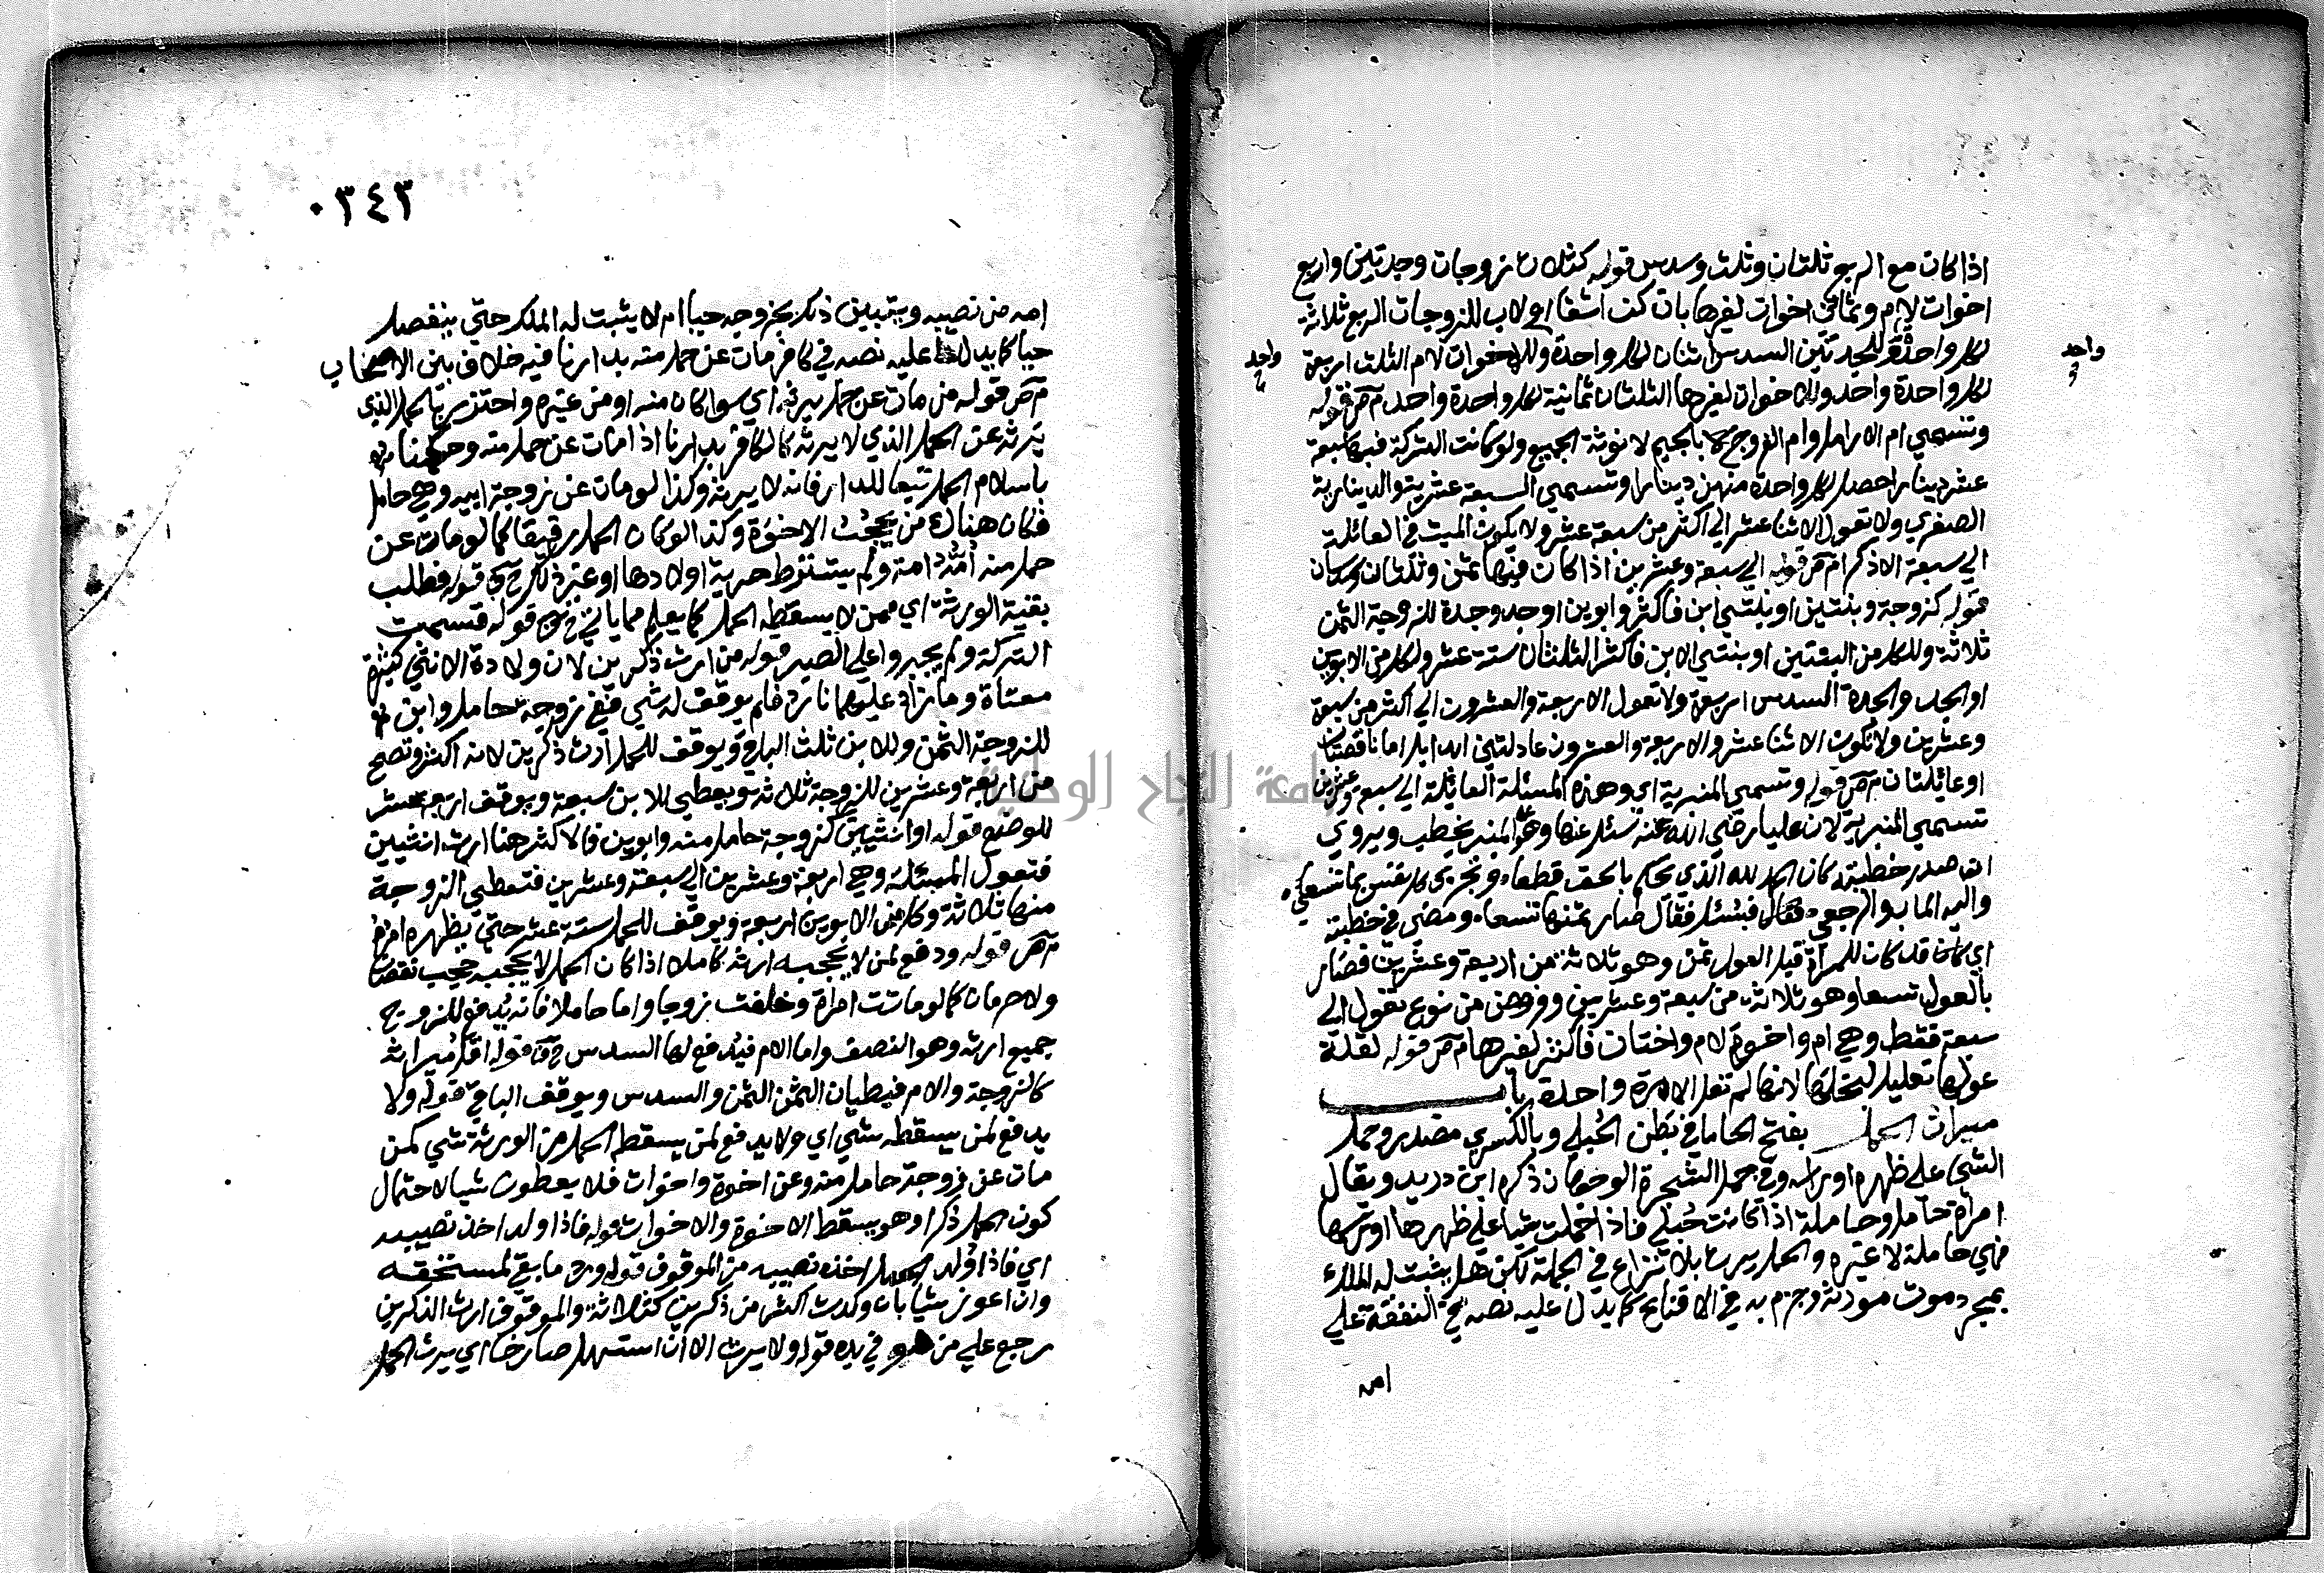 اذا كان مع الربع ثلثان وثلث وسدس قوله كثلاث زوجات وجدتين واربع
اخوات لام وثماني اخوات لغيرها بان كن اشقا او لاب للزوجات الربع ثلاثة
لكل واحدة وللجدتين السدس اثنان لكل واحدة وللاخوات لام الثلث اربعة
واحد
واحد
لكل واحدة واحد وللاخوات لغيرها الثلثان ثمانية لكل واحدة واحد م ص قوله
وتسمي ام الارامل وام الفروج بالجيم لانوثة الجميع ولو كانت التركة فيها سبعة
عشر دينارا حصل لكل واحدة منهن دينارا وتسمي السبعة عشرية والدينارية
الصغري ولا تعول الاثنا عشر الي اكثر من سبعة عشر ولا يكون الميت في العائلة
الي سبعة الا ذكرا م ص قوله الي سبعة وعشرين اذا كان فيها ثمن وثلثان وسدسان
قوله كزوجة وبنتين او بنتي ابن فاكثر وابوين او جد وجدة للزوجة الثمن
ثلاثة وللكل من البنتين او بنتي الابن فاكثر الثلثان ستة عشر ولكل من الابوين
او الجد والجدة السدس اربعة ولا تعول الاربعة والعشرون الي اكثر من سبعة
وعشرين ولا تكون الاثنا عشر والاربعة والعشرون عادلتين ابدا بل اما ناقصتان
او عائلتان م ص قوله وتسمي المنبرية اي وهذه المسئلة العائلة الي سبعة وعشرين
تسمي المنبرية لان عليا رضي الله عنه سئل عنها وهو علي المنبر يخطب ويروي
ان صدر خطبته كان الحمد لله الذي يحكم بالحق قطعا، ويجزي كل نفس بما تسعي،
واليه المآب والرجعي، فسئل فقال صار ثمنها تسعا، ومضي في خطبته
اي كان قد كان للمرأة قبل العول ثمن وهو ثلاثة من اربعة وعشرين فصار
بالعول تسعا وهو ثلاثة من سبعة وعشرين وفرض من نوع تعول الي
سبعة فقط وهي ام واخوة لام واختان فاكثر لغيرها م ص قوله لقلة
عولها تعليل لبخلها لانها لم تعل الا مرة واحدة باب
ميراث الحمل بفتح الحا ما في بطن الحبلي وبالكسر مصدر وحمل
الشي علي ظهره او راسه وفي حمل الشجرة الوجهان ذكره ابن دريد ويقال
امرأة حامل وحاملة اذا كانت حبلي فاذا حملت شيا علي ظهرها او راسها
فهي حاملة لا غيره والحمل يرث بلا نزاع في الجملة لكن هل يثبت له الملك
بمجرد موت مورثه وجزم به في الاقناع كما يدل عليه نصه في النفقة علي
امه
٠٣٤٣
امه من نصيبه ويتبين ذلك بخروجه حيا ام لا يثبت له الملك حتي ينفصل
حيا كما يدل عليه نصه في كافر مات عن حمل منه بدارنا فيه خلاف بين الاصحاب
م ص قوله من مات عن حمل يرثه اي سوا كان منه او من غيره واحترز بالحمل الذي
يرثه عن الحمل الذي لا يرثه كالكافر بدارنا اذا مات عن حمل منه وحكمنا
باسلام الحمل تبعا للدار فانه لا يرثه وكذا لو مات عن زوجة ابيه وهي حامل
فكان هناك من يحجب الاخوة وكذا لو كان الحمل رقيقا كما لو مات عن
حمل منه امة ولم يشترط حرية اولادها او غير ذلك قوله فطلب
بقية الورثة اي ممن لا يسقطه الحمل كما يعلم مما ياتي قوله قسمت
التركة ولم يجبروا علي الصبر قوله من ارث ذكرين لان ولادة الانثي كثيرة
معتادة وما زاد عليهما نادر فلم يوقف له شي ففي زوجة حامل وابن
للزوجة الثمن وللابن ثلث الباقي ويوقف للحمل ارث ذكرين لانه اكثر وتصح
من اربعة وعشرين للزوجة ثلاثة ويعطي للابن سبعة ويوقف اربعة عشر
للوضع قوله او انثيين كزوجة حامل منه وابوين فالاكثر هنا ارث انثيين
فتعول المسئلة وهي اربعة وعشرين الي سبعة وعشرين فتعطي الزوجة
منها ثلاثة وكل من الابوين اربعة ويوقف للحمل ستة عشر حتي يظهر امره
م ص قوله ودفع لمن لا يحجبه ارثه كاملا اذا كان الحمل لا يحجبه حجب نقصان
ولا حرمان كما لو ماتت امرأة وخلفت زوجا واما حاملا فانه يدفع للزوج
جميع ارثه وهو النصف واما الام فيدفع لها السدس قوله اقل ميراثه
كالزوجة والام فيعطيان الثمن والسدس ويوقف الباقي قوله ولا
يدفع لمن يسقطه شي اي ولا يدفع لمن يسقطه الحمل من الورثة شي كمن
مات عن زوجة حامل منه وعن اخوة واخوات فلا يعطون شيا لاحتمال
كون الحمل ذكرا وهو يسقط الاخوة والاخوات قوله فاذا ولد اخذ نصيبه
اي فاذا ولد الحمل اخذ نصيبه من الموقوف قوله ورد ما بقي لمستحقه
وان اعوز شيا بان ولدت اكثر من ذكرين كثلاثة والموقوف ارث الذكرين
رجع علي من هو في يده قوله ولا يرث الا ان استهل صارخا اي يرث الحمل